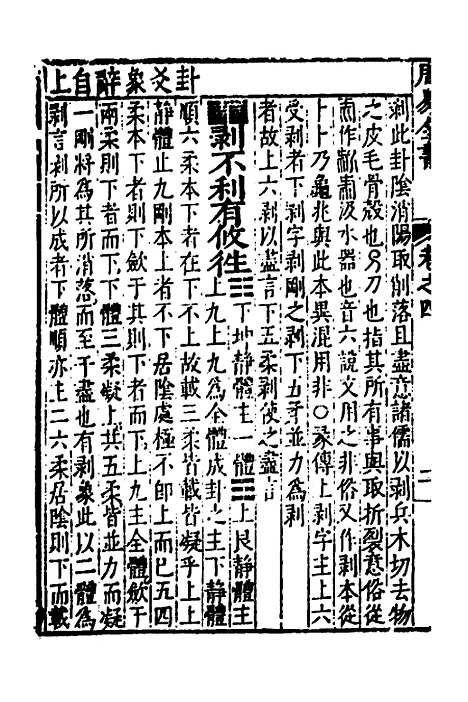 周易全書 卷之四 二
剝此卦陰消陽取剝落且盡意諸儒以剝兵木切去物
之皮毛骨殼也刀也指其所有事與取折裂意俗從
而作㔍肅汲水器也音六說文用之非俗又作剝本從
卜卜乃龜兆與此本異混用非○彖傳上剝字主上六
受剝者下剝字剝剛之剝下五矛並力為剝
者故上六剝以盡言下五柔剝使之盡言
剝不利有攸往☷下地靜體主一體☶上艮靜體主
上九上九為全體成卦之主下靜體
順六柔本下者在下不上故載三柔皆載皆凝乎上上
靜體止九剛本上者不下居陰處極不卽上而已五四
柔本下者則下斂于其則下者而下上九主全體斂于
兩柔則下者而下下體三柔凝上共五柔皆並力而凝
一剛將為其所消落而至于盡也有剝象此以二體為
剝言剝所以成者下體順亦主二六柔居陰則下而載
卦爻彖辭自上